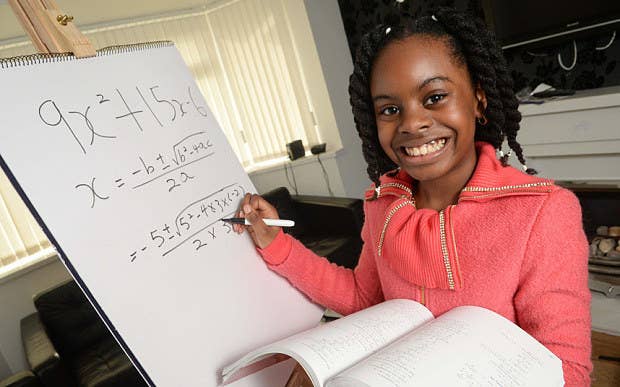 9x²+15x-6
x = -b ± √b²-4ac / 2a
= -5 ± √5²-4x3x(-2) / 2 x 3